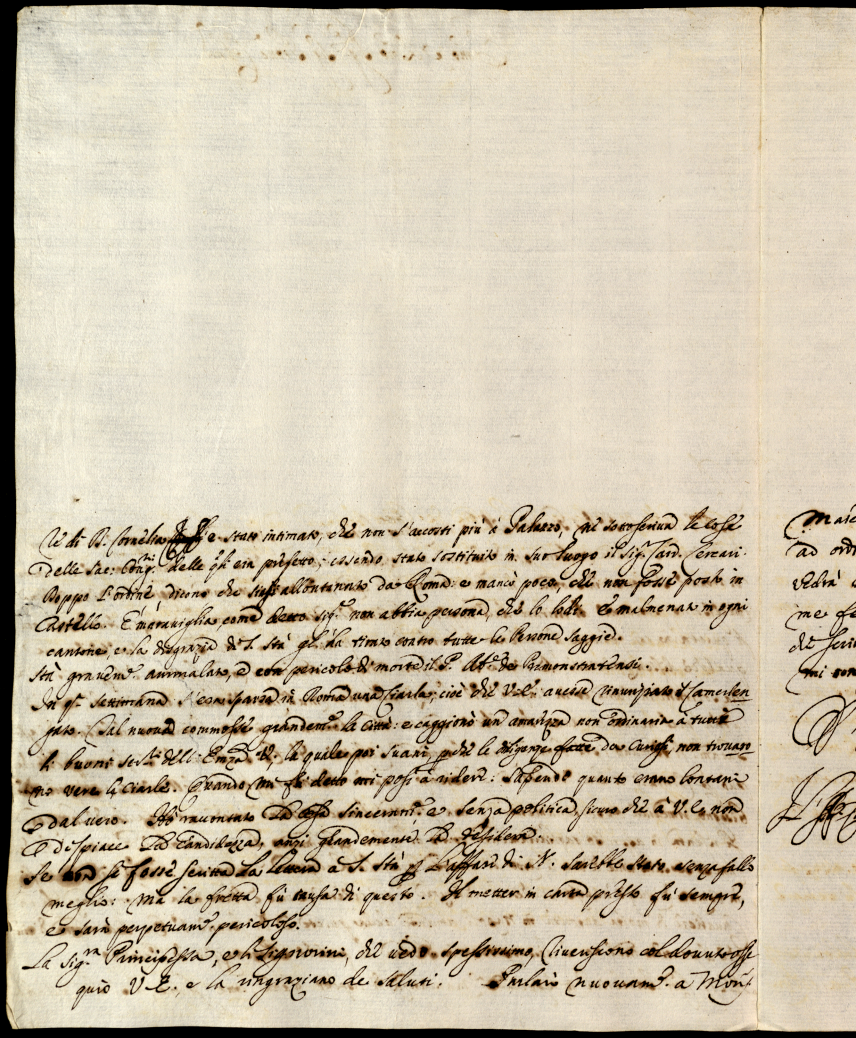 è stato intimato, che non s'accosti più à Palazzo, ne sottoscriva le cose
delle Sac: Cong.ni delle q.li era prefetto; essendo stato sostituito in suo luogo il Sig.r Card.
Doppo l'ordine dicono che allontanato da Roma: e mancò poco, che non fosse posto in
Castello. E' maraviglia come detto Sig.r non abbia persona, che lo lodi. è malmenato in ogni
cantone, e la disgrazia di S. Stà gl'hà tirato contro tutte le Persone saggie.
Stà gravem.te ammalato, e con pericolo di morte il P. Ab.te de Premonstratensi.
In q.sta settimana s'era sparsa in Roma una Ciarla, cioè che V.E. avesse rinunziato il Camerlen
gato. Tal nuova commosse grandem.te la Città: e caggionò un'amarezza non ordinaria à tutti
li buoni ser.ri dell'Emza V. la quale poi svanì, perche le diligenze fatte da Curiosi, non trovaro
no vere le ciarle. Quando mi fù detto mi posi à ridere: sapendo quanto erano lontani
dal vero. Hò raccontato sinceram.te e senza politica, sicuro che à V.E. non
dispiace la candidezza, anzi grandemente la desidera.
Se non si fosse scritta la lettera à S. Stà l'affare di N. sarebbe stato senza fallo
meglio: ma la fretta fù causa di questo. Il metter in carta presto fù sempre,
e sarà perpetuam.te pericoloso.
La Sig.ra Principessa, e li Signorini, che vedo spessissimo, riveriscono col dovuto osse
quio V.E. e la ringraziano de saluti. Parlarò nuovam.te a Mons.r
Marc
ad ord
vedrà
me fe
che scri
mi con